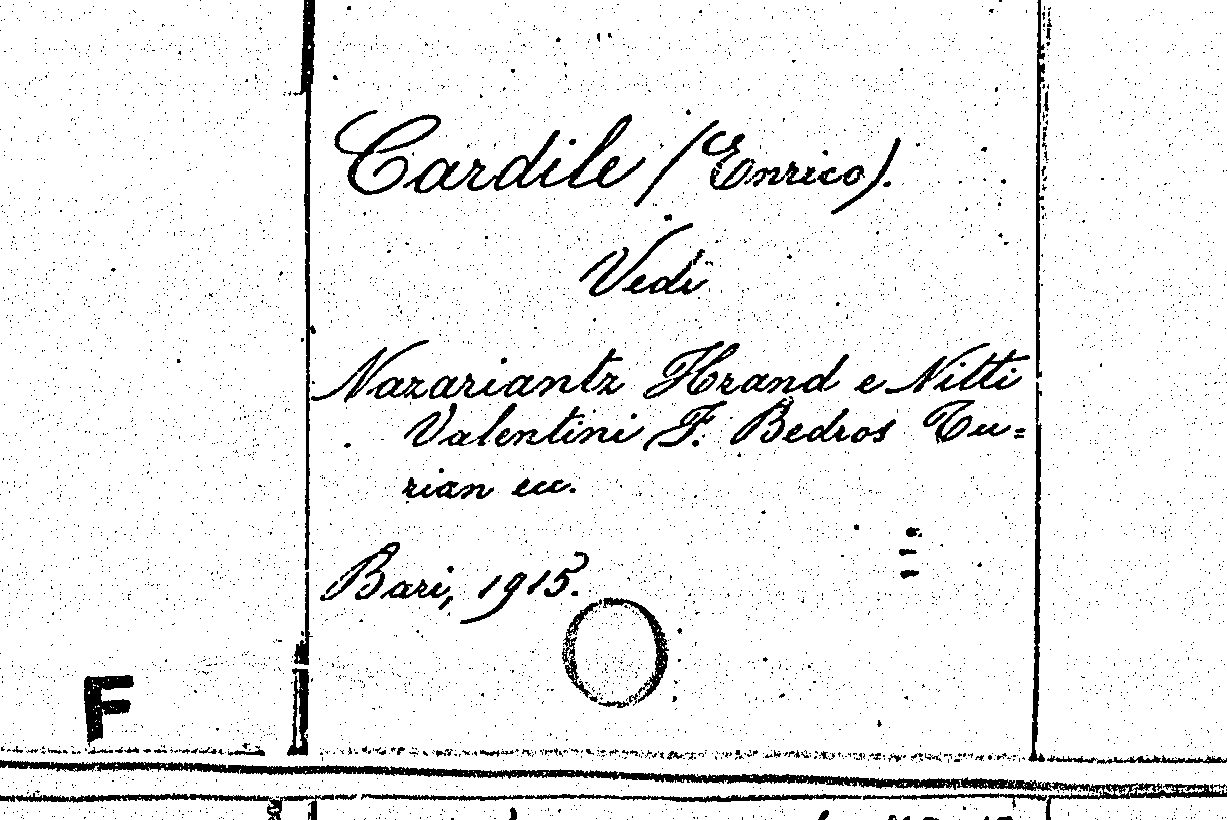 Cardile (Enrico).
Vedi
Nazariantz Hrand e Nitti
Valentini F. Bedros Tu=
rian ecc.
Bari, 1915.
F